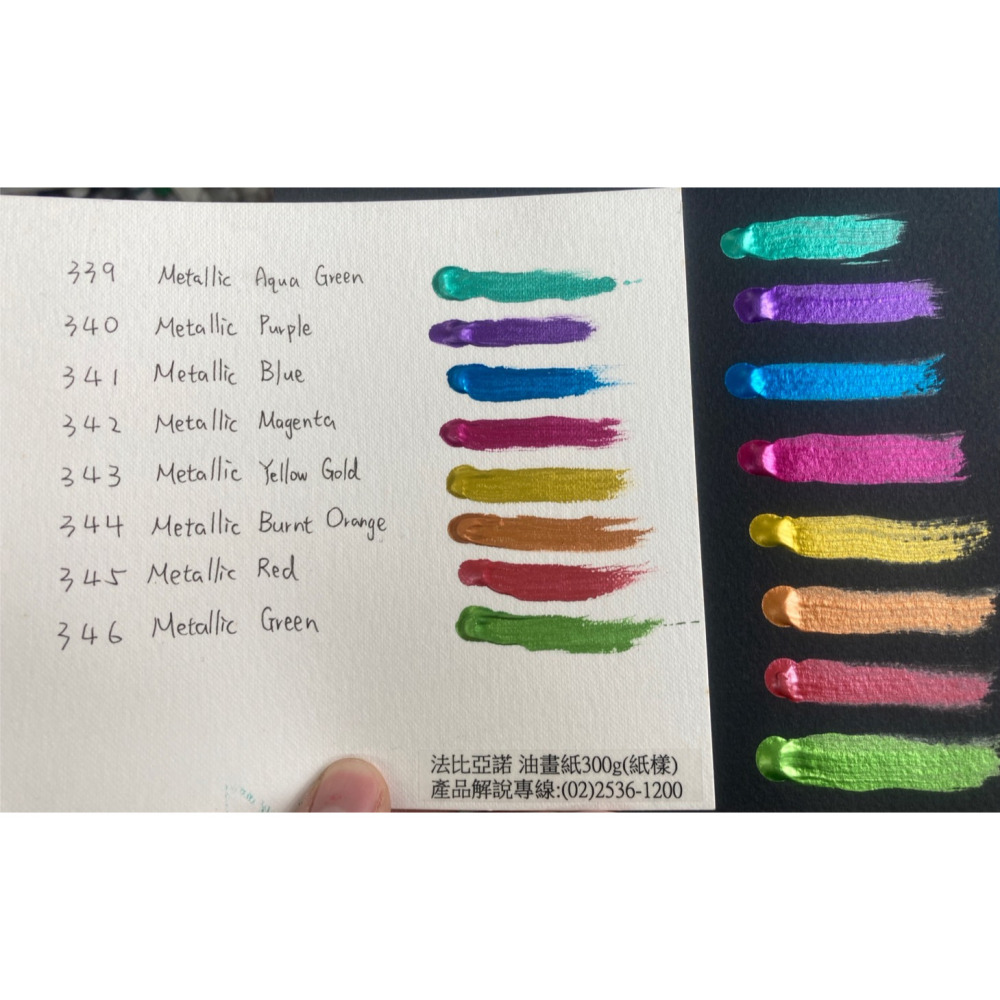 339 Metallic Aqua Green
340 Metallic Purple
341 Metallic Blue
342 Metallic Magenta
343 Metallic Yellow Gold
344 Metallic Burnt Orange
345 Metallic Red
346 Metallic Green
法比亞諾 油畫紙300g(紙樣)
產品解說專線:(02)2536-1200